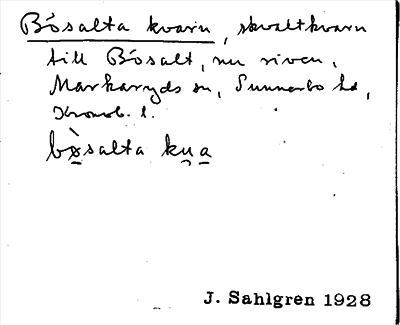 Bösalta kvarn, skvaltkvarn
till Bösalt, nu riven,
Markaryds sn, Sunnerbo hd,
Kronob. l.
bø̀salta ku̯a
J. Sahlgren 1928